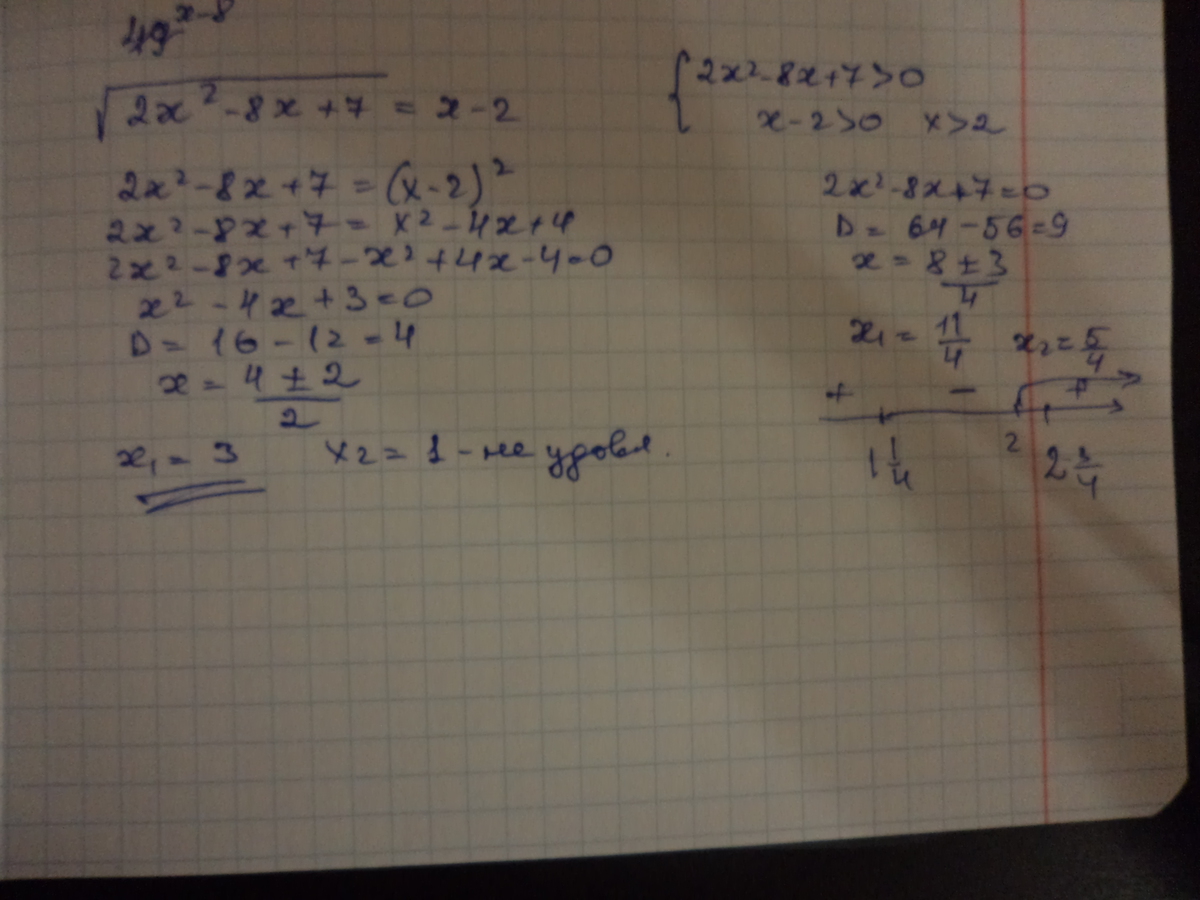 49^x-8
√2x² - 8x + 7 = x - 2
2x² - 8x + 7 = (x - 2)²
2x² - 8x + 7 = x² - 4x + 4
2x² - 8x + 7 - x² + 4x - 4 = 0
x² - 4x + 3 = 0
D = 16 - 12 = 4
x = 4 ± 2 / 2
x₁ = 3 x₂ = 1 - не удовл.
{ 2x² - 8x + 7 > 0
x - 2 > 0 x > 2
2x² - 8x + 7 = 0
D = 64 - 56 = 9
x = 8 ± 3 / 4
x₁ = 11/4 x₂ = 5/4
+ - +
1 1/4 2 2 3/4